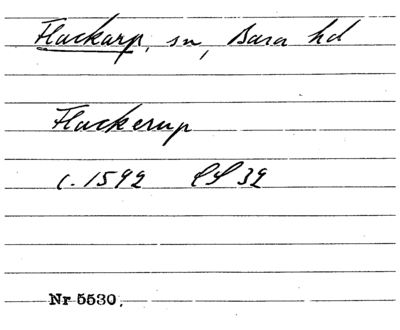 Flackarp, sn, Bara hd
Flackerup
c. 1592 LS 32
Nr 5530.